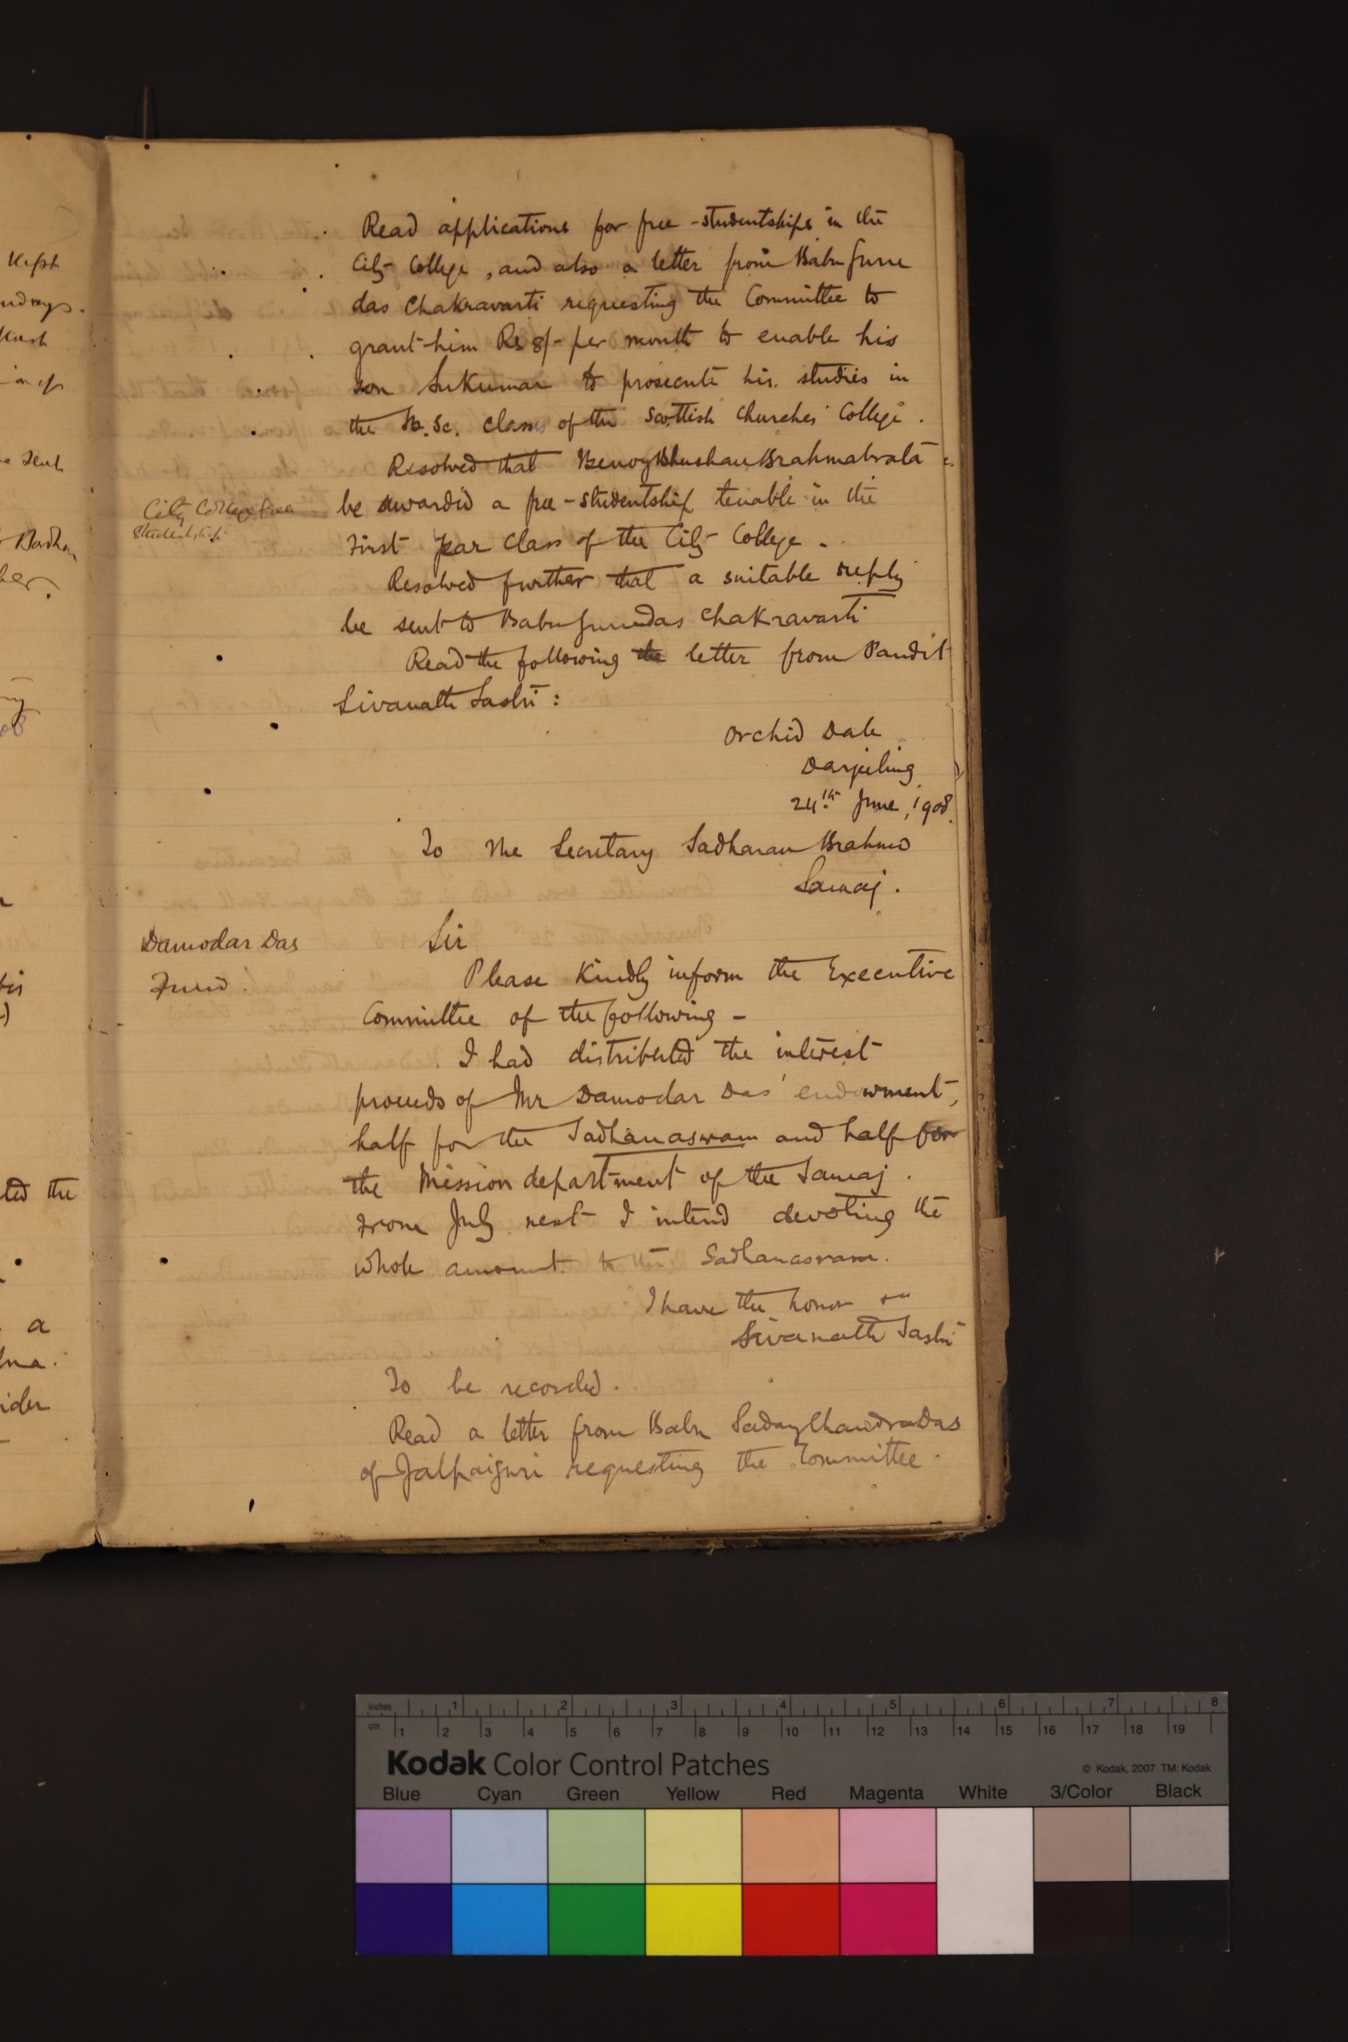 Read applications for free-studentships in the
City College, and also a letter from Babu Guru
das Chakravarti requesting the Committee to
grant him Rs 8/- per month to enable his
son Sukumar to prosecute his studies in
the B.Sc. class of the Scottish Churches' College.
Resolved that Benoy Bhushan Brahmabrata
City College free
studentship.
be awarded a free-studentship tenable in the
First year class of the City College.
Resolved further that a suitable reply
be sent to Babu Gurudas Chakravarti
Read the following the letter from Pandit
Sivanath Sastri:
Orchid Dale
Darjeeling
24th June, 1908.
To The Secretary Sadharan Brahmo
Samaj.
Damodar Das
Fund.
Sir
Please kindly inform the Executive
Committee of the following -
I had distributed the interest
proceeds of Mr Damodar Das' endowment,
half for the Sadhanasram and half for
the Mission department of the Samaj.
From July next I intend devoting the
whole amount to the Sadhanasram.
I have the honor
Sivanath Sastri
To be recorded.
Read a letter from Babu Saday Chandra Das
of Jalpaiguri requesting the Committee
Kept
sent
ted the
a
inches 1 2 3 4 5 6 7 8
cm 1 2 3 4 5 6 7 8 9 10 11 12 13 14 15 16 17 18 19
Kodak Color Control Patches
© Kodak, 2007 TM: Kodak
Blue Cyan Green Yellow Red Magenta White 3/Color Black